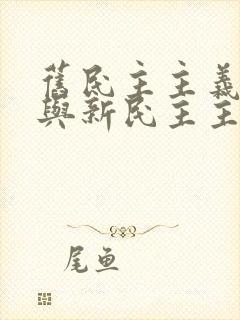 舊民主主義
與新民主主
尾鱼